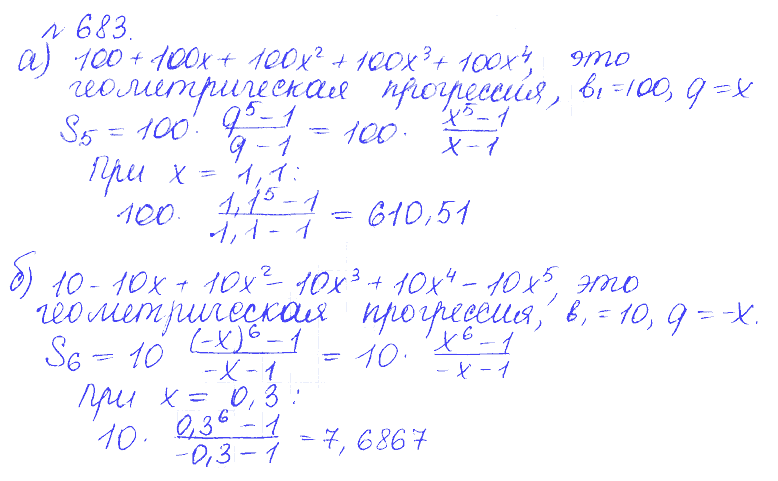 № 683.
а) 100 + 100x + 100x² + 100x³ + 100x⁴, это
геометрическая прогрессия, в₁ = 100, q = x
S₅ = 100 · (q⁵ - 1)/(q - 1) = 100 · (x⁵ - 1)/(x - 1)
При x = 1,1:
100 · (1,1⁵ - 1)/(1,1 - 1) = 610,51
б) 10 - 10x + 10x² - 10x³ + 10x⁴ - 10x⁵, это
геометрическая прогрессия, в₁ = 10, q = -x.
S₆ = 10 ((-x)⁶ - 1)/(-x - 1) = 10 · (x⁶ - 1)/(-x - 1)
При x = 0,3:
10 · (0,3⁶ - 1)/(-0,3 - 1) = 7,6867